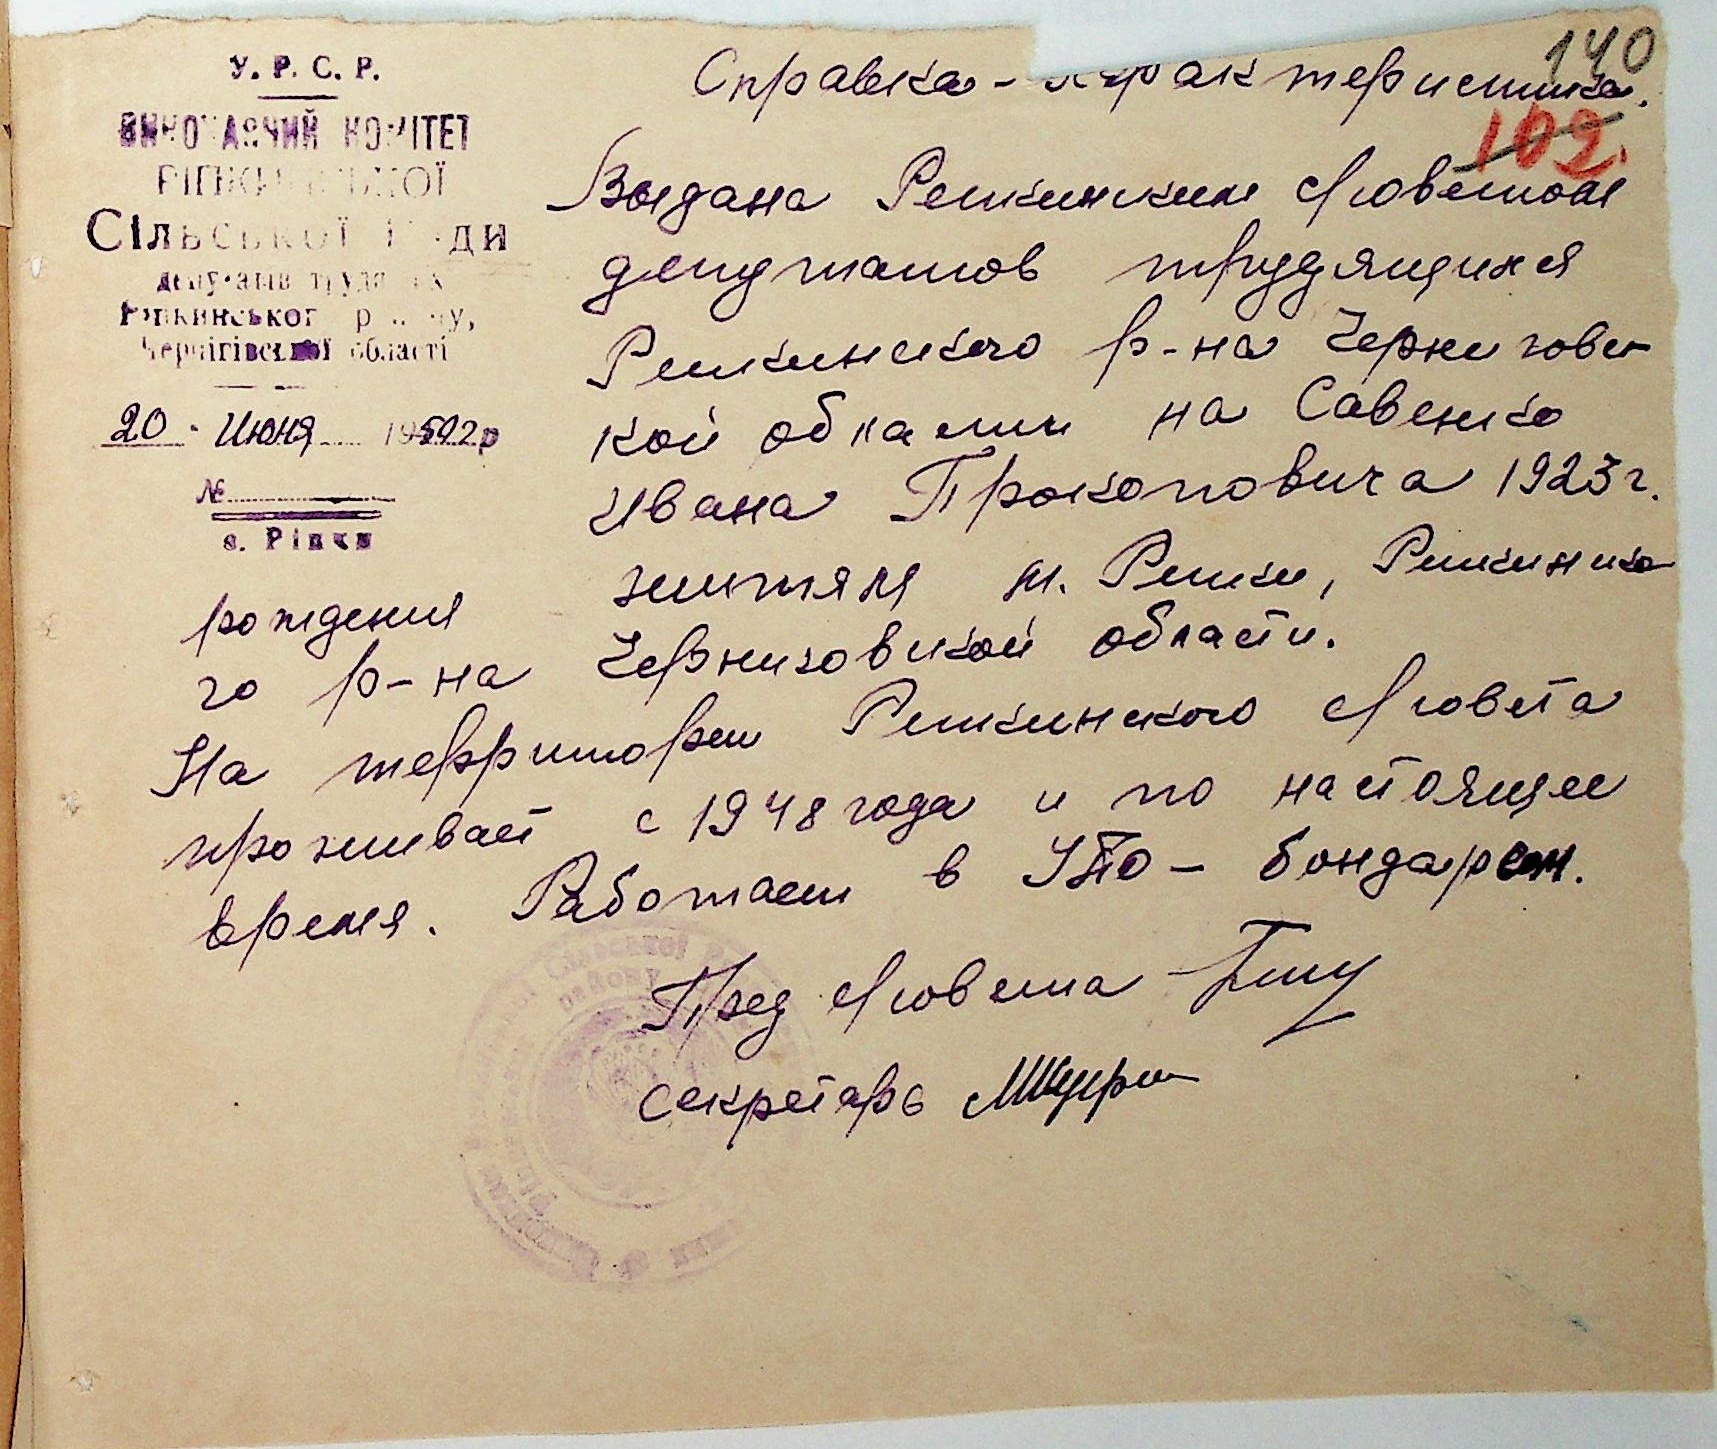 У. Р. С. Р.
ВИКОНАВЧИЙ КОМІТЕТ
РІПКИНСЬКОЇ
СІЛЬСЬКОЇ РАДИ
депутатів трудящих
Ріпкинського району,
Чернігівської області
20 Июня 1952 р
№
с. Ріпки
140
102.
Справка - характеристика.
Выдана Репкинским с/советом
депутатов трудящихся
Репкинского р-на Черниговс-
кой области на Савенко
Ивана Прокоповича 1923 г.
рождения жителя м. Репки, Репкинско
го р-на Черниговской области.
На территории Репкинского с/совета
проживает с 1948 года и по настоящее
время. Работает в УПО - бондарем.
Пред с/совета
секретарь
Сільської
району